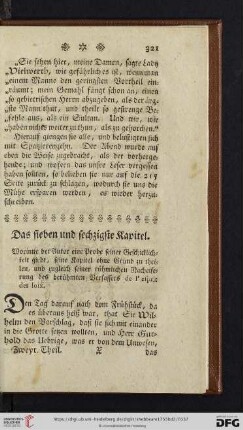 321
„Sie sehen hier, meine Damen, sagte Lady
Vielwerth, wie gefährlich es ist, wenn man
einem Manne den geringsten Vortheil ein-
räumt; mein Gemahl fängt schon an, einen
so gebietrischen Herrn abzugeben, als der ärg-
ste Mann thut, und theilt so gestrenge Be-
fehle aus, als ein Sultan. Und wir, wir
haben nichts weiter zu thun, als zu gehorchen.“
Hierauf giengen sie alle, und belustigten sich
mit Spatzierengehn. Der Abend wurde auf
eben die Weise zugebracht, als der vorherge-
hende; und wofern das unser Leser vergessen
haben sollten, so belieben sie nur auf die 265
Seite zurück zu schlagen, wodurch sie uns die
Mühe ersparen werden, es wieder herzu-
schreiben.
Das sieben und sechzigste Kapitel.
Worinne der Autor eine Probe seiner Geschicklich-
keit giebt, seine Kapitel ohne Grund zu thei-
len, und zugleich seiner rühmlichen Nacheife-
rung des berühmten Verfassers de l'esprit
des loix.
Den Tag darauf nach dem Frühstück, da
es überaus heiß war, that Sir Wil-
helm den Vorschlag, daß sie sich mit einander
in die Grotte setzen wollten, und Herr Gut-
hold das Uebrige, was er von dem Unwesen,
Zweyt. Theil. X das
DFG